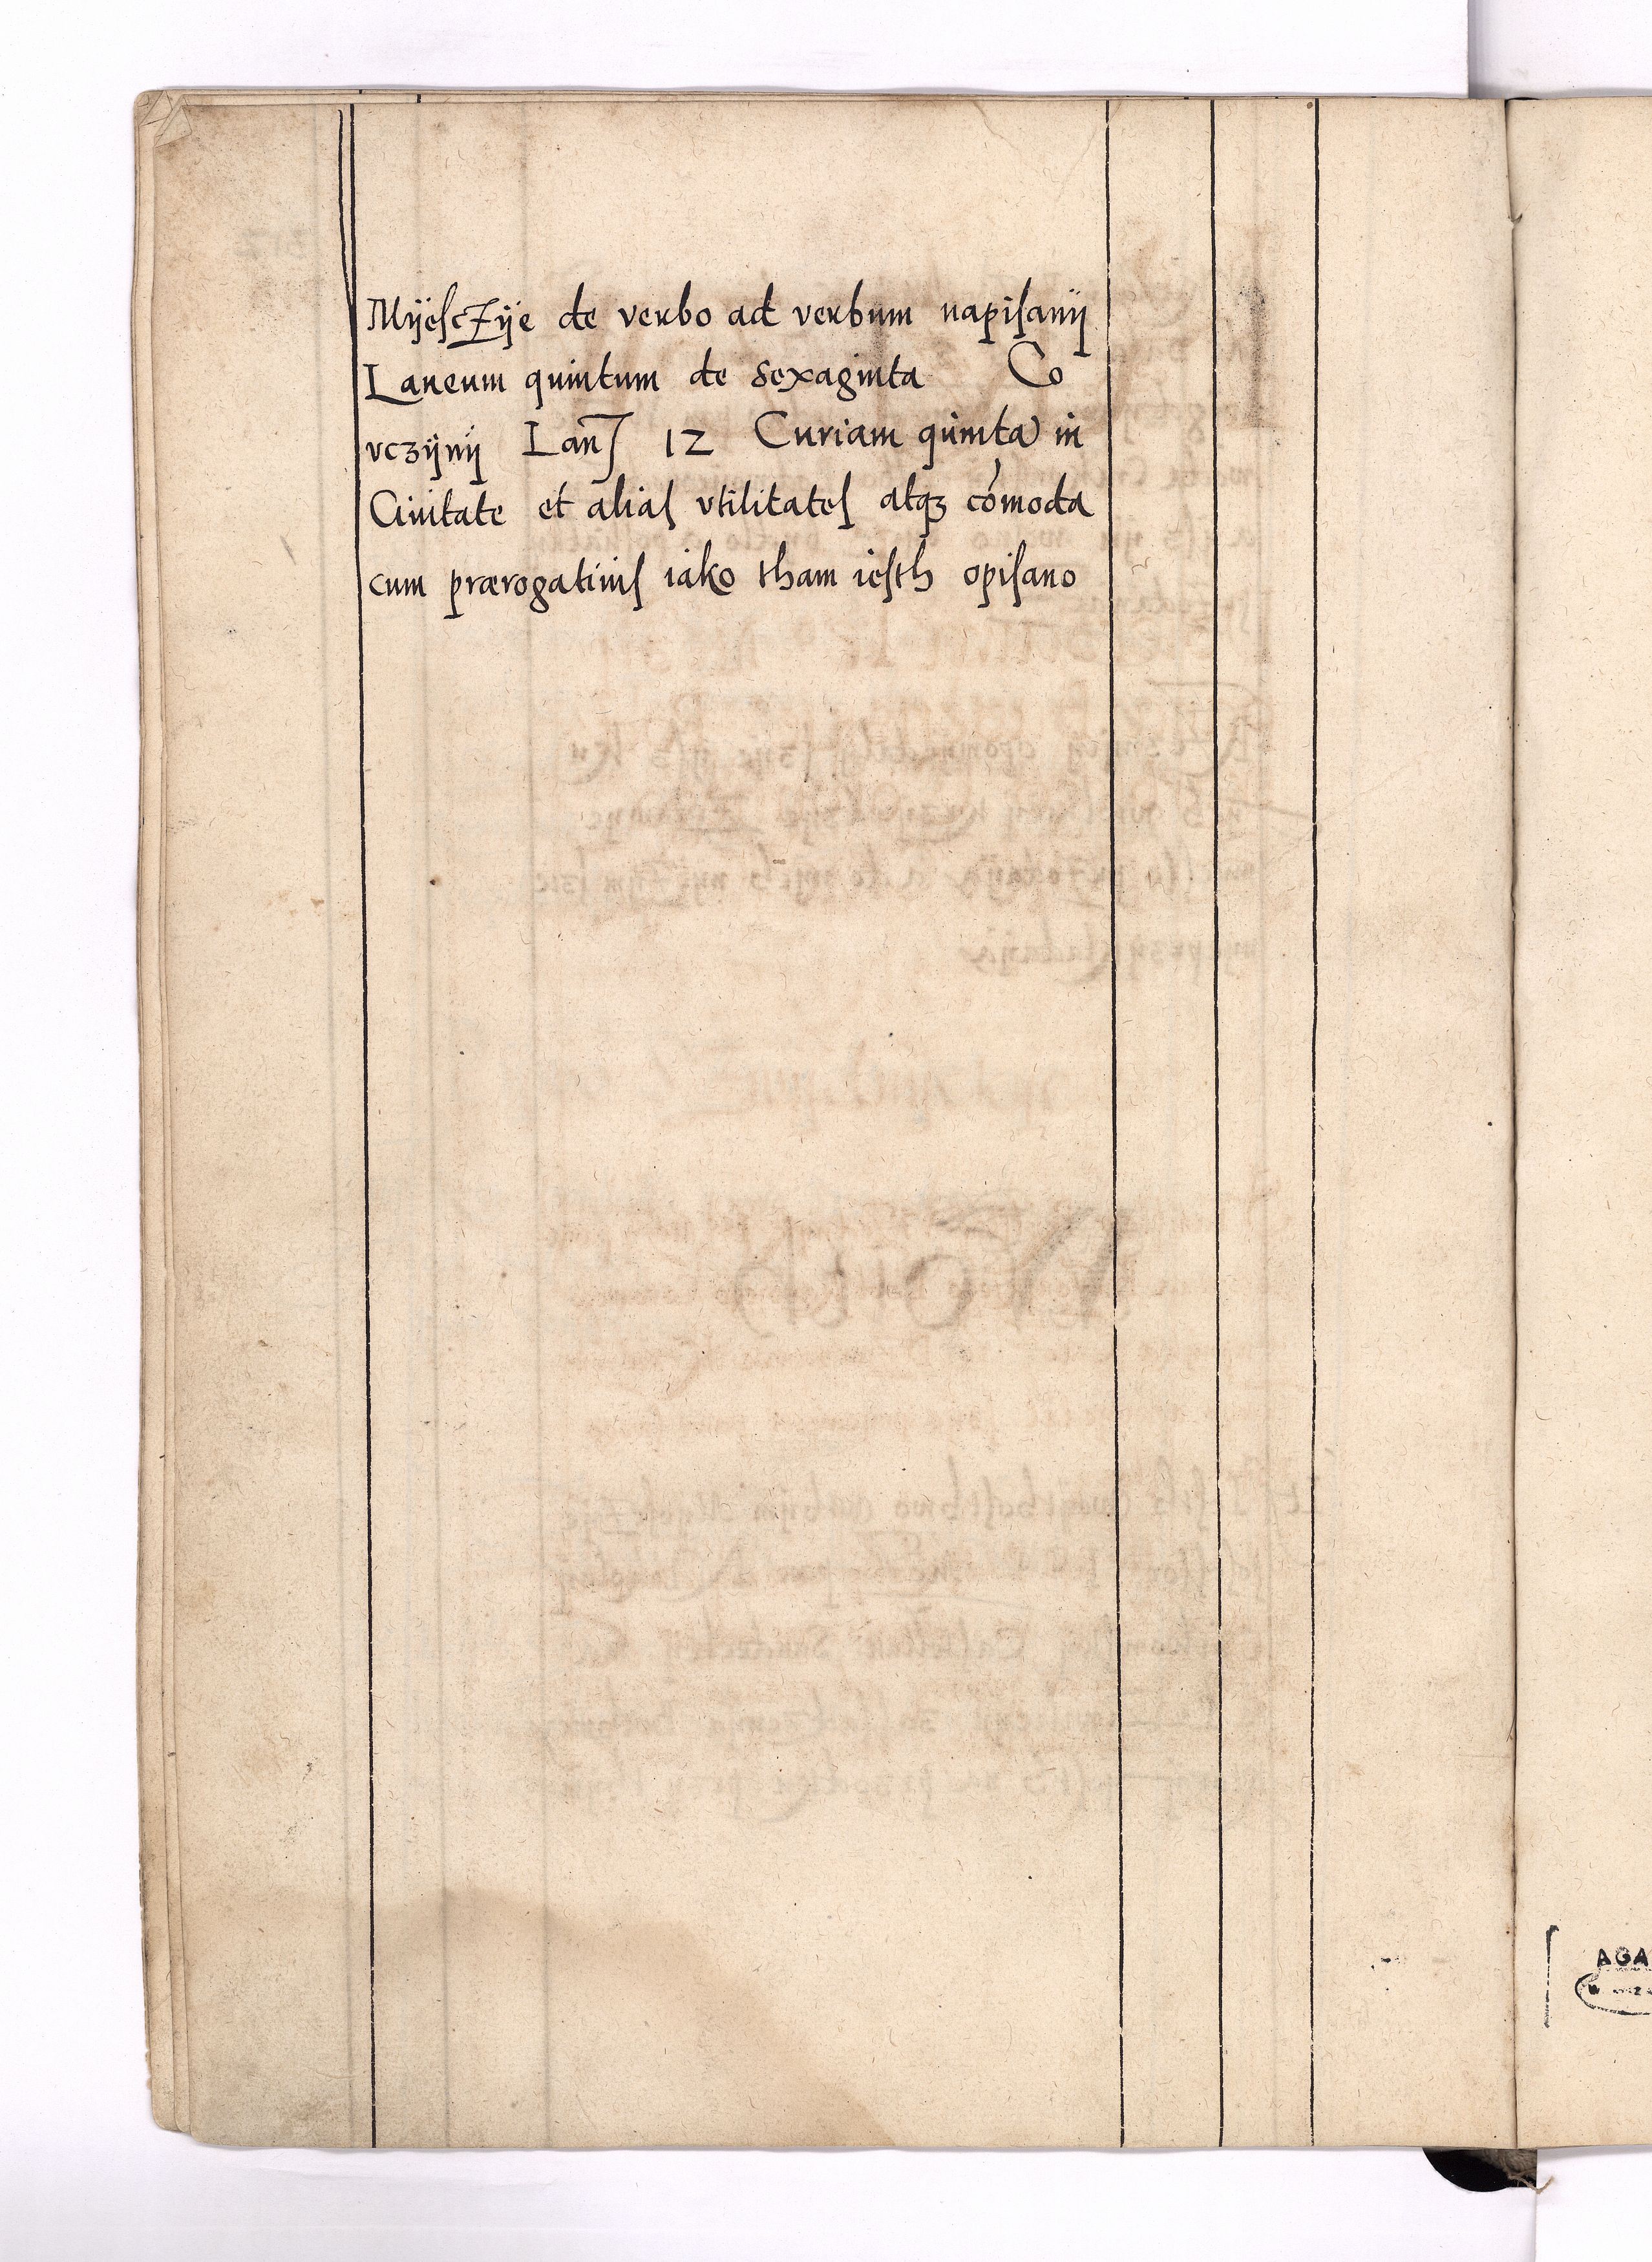 Mÿeſczÿe de verbo ad verbum napiſanÿ
Laneum quintum de sexaginta Co
vczÿnÿ Lanſ 12 Curiam quinta in
Ciuitate et aliaſ vtilitateſ atqꝫ cómoda
cum prærogatiuiſ iako tham ieſth opiſano
AGA